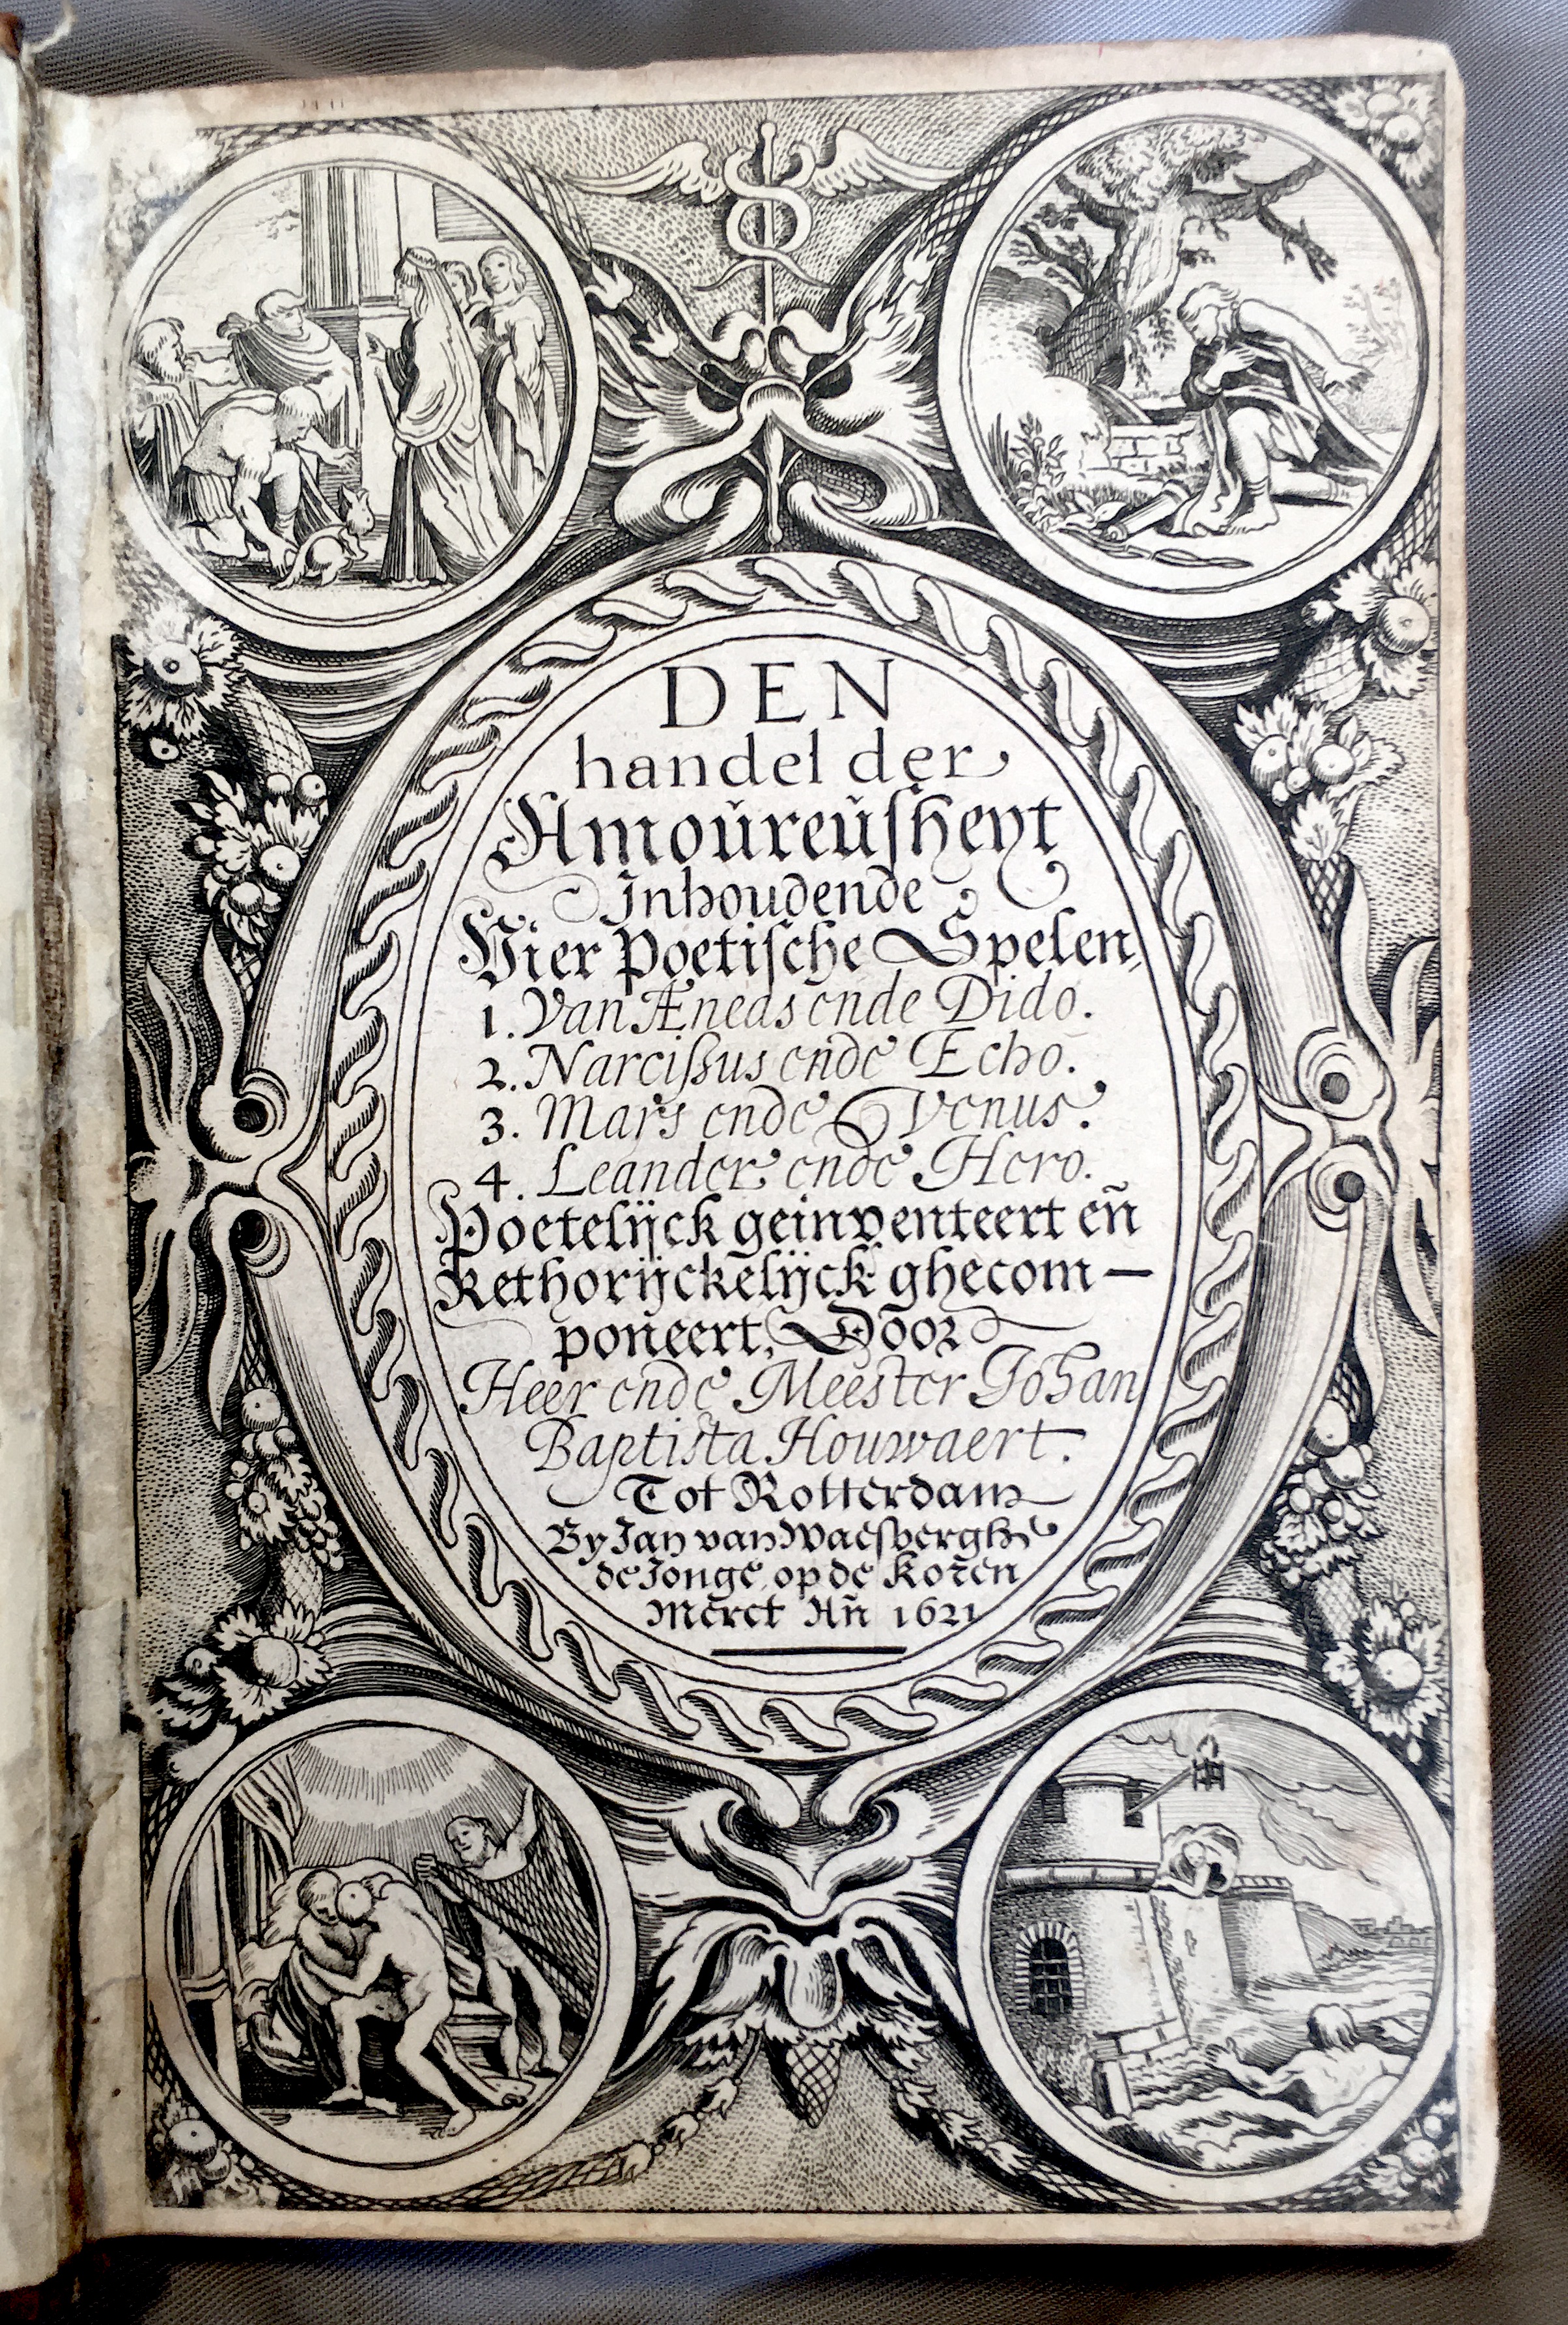 DEN
handel der
Amoŭreŭſheyt
Inhoudende
Vier Poetiſche Spelen,
1. Van Æneas ende Dido.
2. Narciſsus ende Echo.
3. Mars ende Venus.
4. Leander ende Hero.
Poetelijck geinventeert en̄
Rethorijckelijck ghecom-
poneert, Door
Heer ende Meester Johan
Baptista Houwaert.
Tot Rotterdam
By Jan van Waeſbergh
de Jonge op de Koren
Merct An̄ 1621